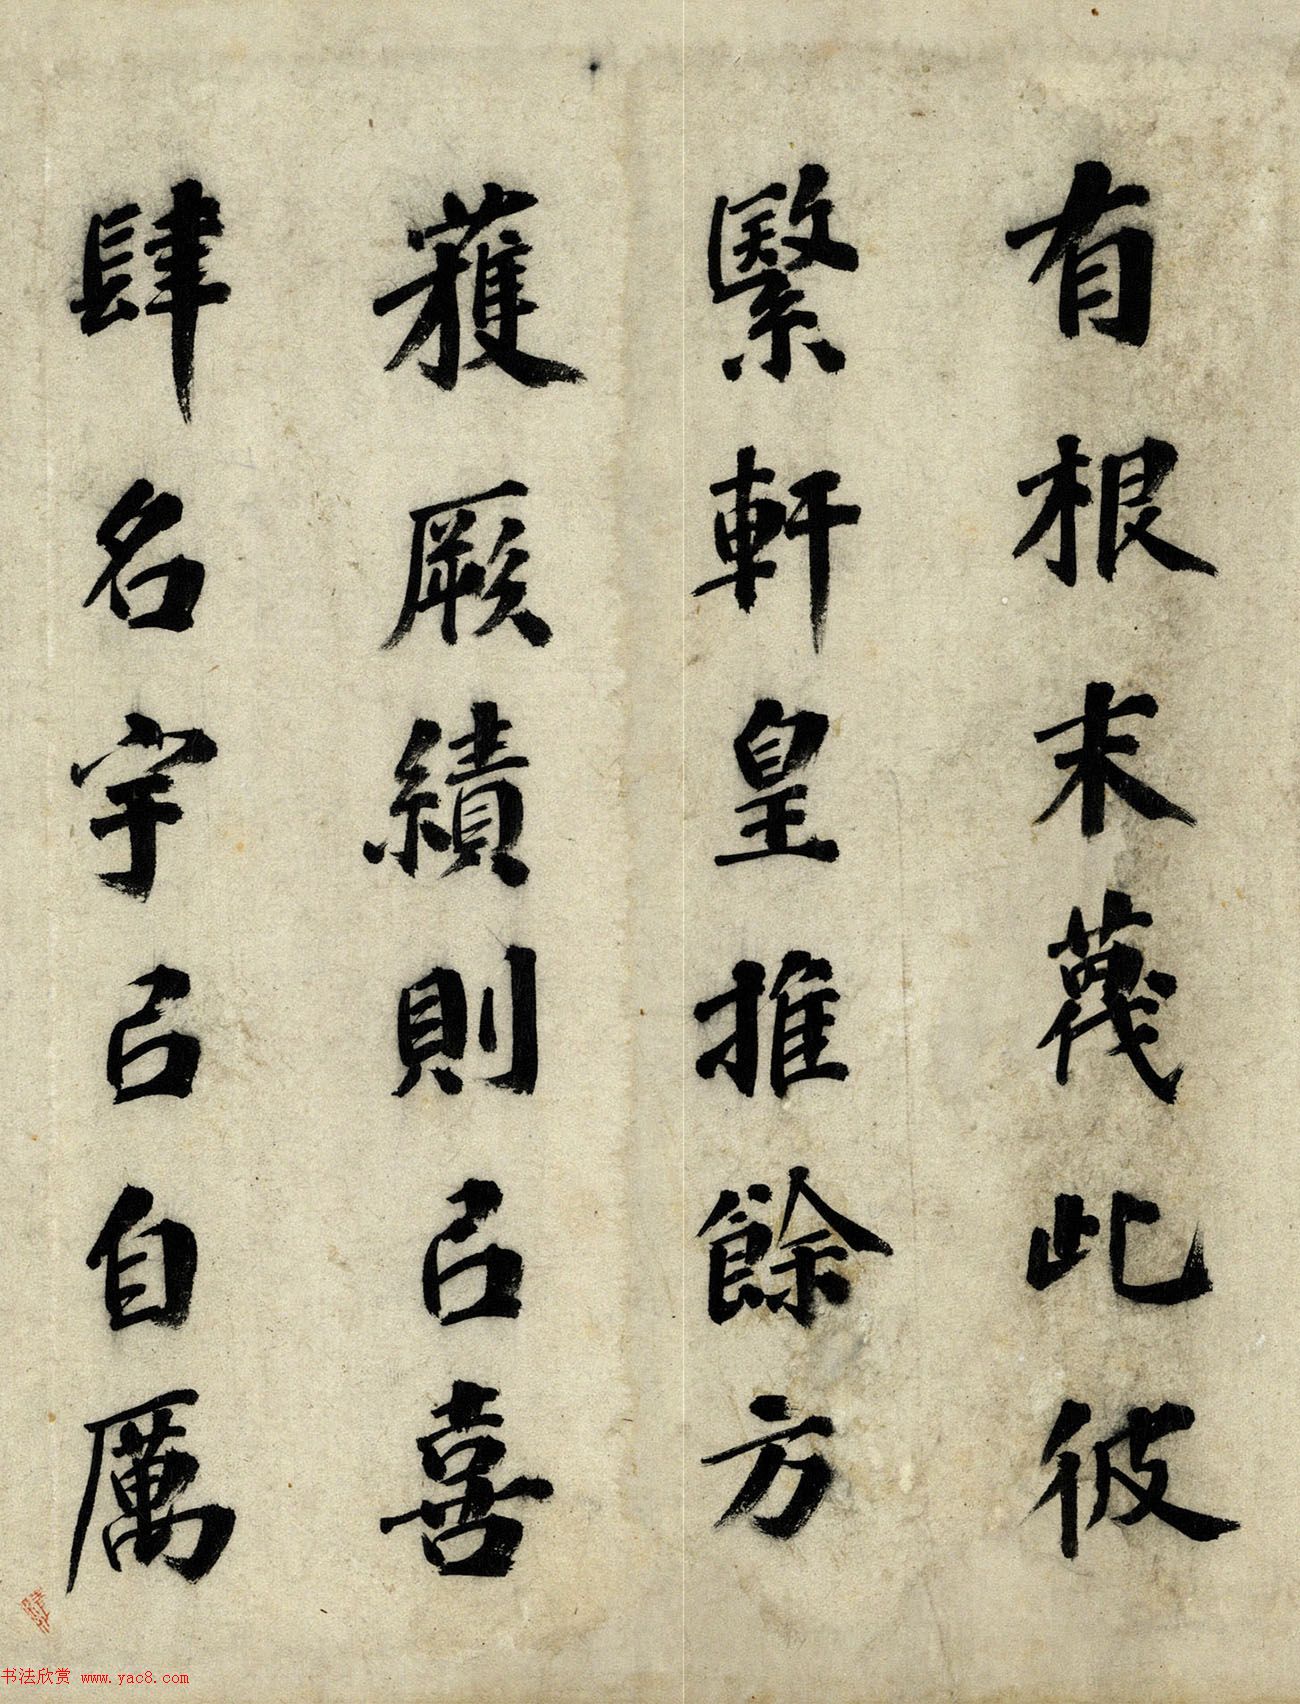 有根末蔑此彼
繄軒皇推餘方
蒦厥績則㠯喜
肆名宇㠯自厲
书法欣赏 www.yac8.com